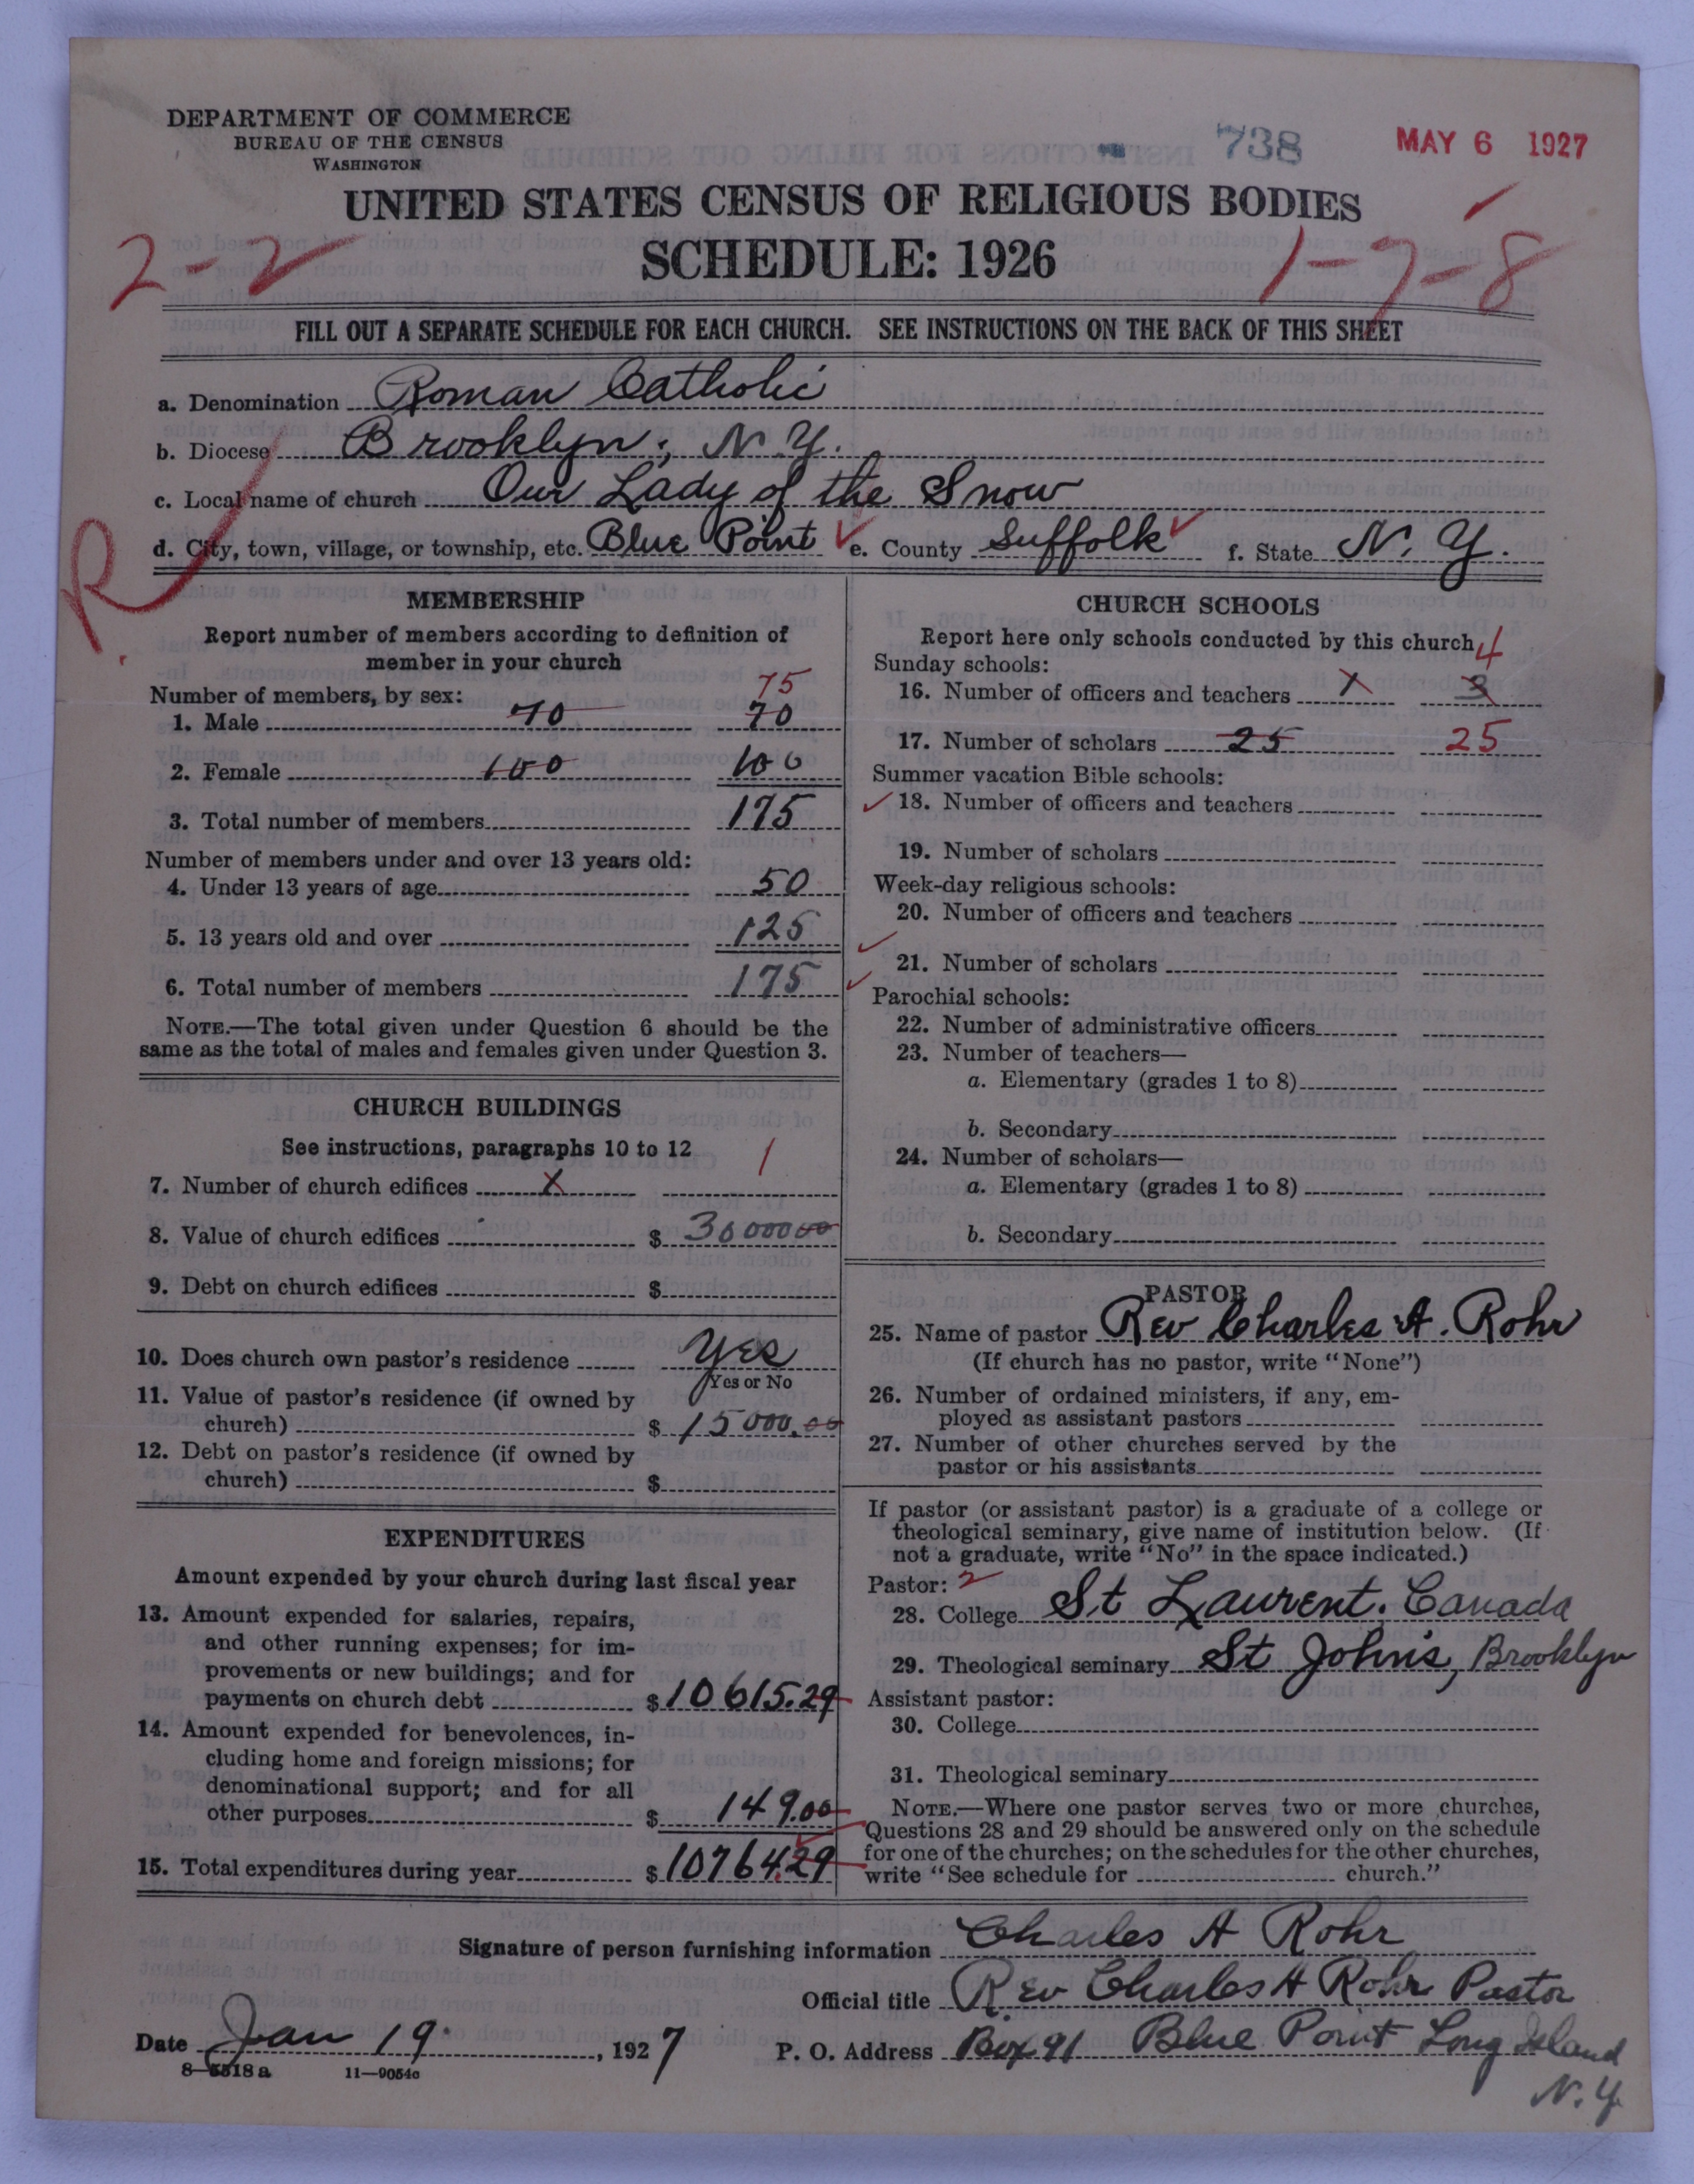 DEPARTMENT OF COMMERCE
BUREAU OF THE CENSUS
WASHINGTON
738
MAY 6 1927
UNITED STATES CENSUS OF RELIGIOUS BODIES
SCHEDULE: 1926
2-2
1-7-8
FILL OUT A SEPARATE SCHEDULE FOR EACH CHURCH. SEE INSTRUCTIONS ON THE BACK OF THIS SHEET
a. Denomination Roman Catholic
b. Diocese Brooklyn, N.Y.
c. Local name of church Our Lady of the Snow
d. City, town, village, or township, etc. Blue Point e. County Suffolk f. State N.Y.
R
MEMBERSHIP
Report number of members according to definition of
member in your church
Number of members, by sex:
75
1. Male 70 70
2. Female 100 100
3. Total number of members 175
Number of members under and over 13 years old:
4. Under 13 years of age 50
5. 13 years old and over 125
6. Total number of members 175
NOTE.—The total given under Question 6 should be the
same as the total of males and females given under Question 3.
CHURCH BUILDINGS
See instructions, paragraphs 10 to 12
7. Number of church edifices X 1
8. Value of church edifices $ 30000 00
9. Debt on church edifices $
10. Does church own pastor's residence Yes
Yes or No
11. Value of pastor's residence (if owned by
church) $ 15000.00
12. Debt on pastor's residence (if owned by
church) $
EXPENDITURES
Amount expended by your church during last fiscal year
13. Amount expended for salaries, repairs,
and other running expenses; for im-
provements or new buildings; and for
payments on church debt $10615.29
14. Amount expended for benevolences, in-
cluding home and foreign missions; for
denominational support; and for all
other purposes $ 149.00
15. Total expenditures during year $10764.29
CHURCH SCHOOLS
Report here only schools conducted by this church
Sunday schools: 4
16. Number of officers and teachers X 3
17. Number of scholars 25 25
Summer vacation Bible schools:
18. Number of officers and teachers
19. Number of scholars
Week-day religious schools:
20. Number of officers and teachers
21. Number of scholars
Parochial schools:
22. Number of administrative officers
23. Number of teachers—
a. Elementary (grades 1 to 8)
b. Secondary
24. Number of scholars—
a. Elementary (grades 1 to 8)
b. Secondary
PASTOR
25. Name of pastor Rev Charles A. Rohr
(If church has no pastor, write "None")
26. Number of ordained ministers, if any, em-
ployed as assistant pastors
27. Number of other churches served by the
pastor or his assistants
If pastor (or assistant pastor) is a graduate of a college or
theological seminary, give name of institution below. (If
not a graduate, write "No" in the space indicated.)
Pastor: 2
28. College St Laurent. Canada
29. Theological seminary St John's, Brooklyn
Assistant pastor:
30. College
31. Theological seminary
NOTE.—Where one pastor serves two or more churches,
Questions 28 and 29 should be answered only on the schedule
for one of the churches; on the schedules for the other churches,
write "See schedule for church."
Signature of person furnishing information Charles A Rohr
Official title Rev Charles A Rohr Pastor
Date Jan 19, 1927 P. O. Address Box 91 Blue Point Long Island
N.Y.
8—5518 a 11—9054c